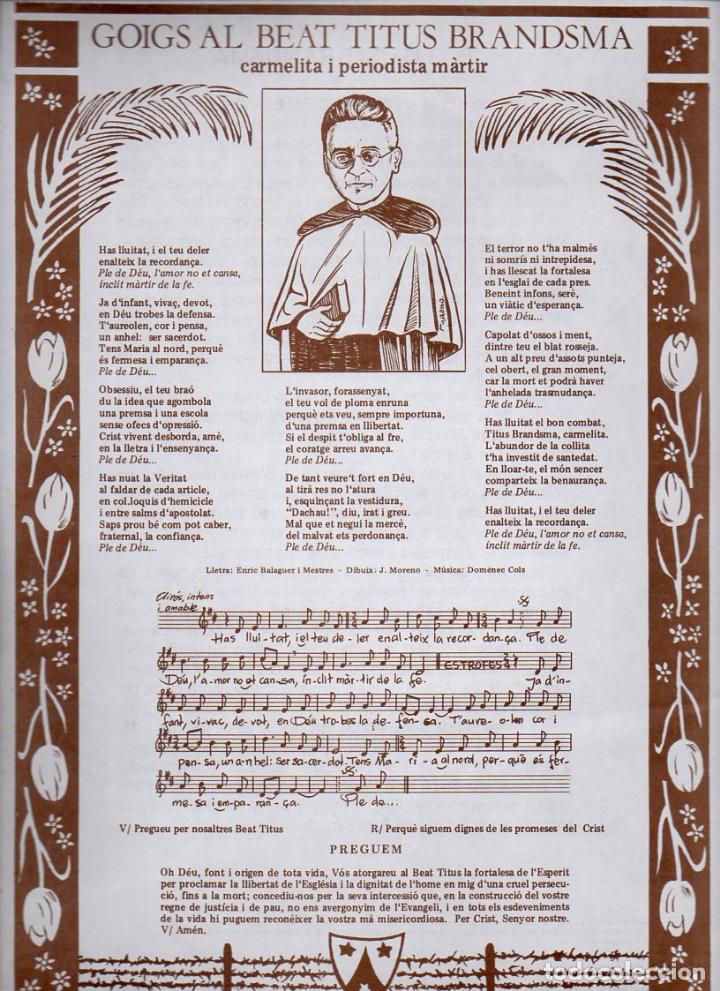 GOIGS AL BEAT TITUS BRANDSMA
carmelita i periodista màrtir
Has lluitat, i el teu deler
enalteix la recordança.
Ple de Déu, l'amor no et cansa,
ínclit màrtir de la fe.
Ja d'infant, vivaç, devot,
en Déu trobes la defensa.
T'aureolen, cor i pensa,
un anhel: ser sacerdot.
Tens Maria al nord, perquè
és fermesa i emparança.
Ple de Déu...
Obsessiu, el teu braó
du la idea que agombola
una premsa i una escola
sense ofecs d'opressió.
Crist vivent desborda, amè,
en la lletra i l'ensenyança.
Ple de Déu...
Has nuat la Veritat
al faldar de cada article,
en col.loquis d'hemicicle
i entre salms d'apostolat.
Saps prou bé com pot caber,
fraternal, la confiança.
Ple de Déu...
L'invasor, forassenyat,
el teu vol de ploma enruna
perquè ets veu, sempre importuna,
d'una premsa en llibertat.
Si el despit t'obliga al fre,
el coratge arreu avança.
Ple de Déu...
De tant veure't fort en Déu,
al tirà res no l'atura
i, esquinçant la vestidura,
"Dachau!", diu, irat i greu.
Mal que et negui la mercè,
del malvat ets perdonança.
Ple de Déu...
El terror no t'ha malmès
ni somrís ni intrepidesa,
i has llescat la fortalesa
en l'esglai de cada pres.
Beneint infons, serè,
un viàtic d'esperança.
Ple de Déu...
Capolat d'ossos i ment,
dintre teu el blat rosseja.
A un alt preu d'assots punteja,
cel obert, el gran moment,
car la mort et podrà haver
l'anhelada trasmudança.
Ple de Déu...
Has lluitat el bon combat,
Titus Brandsma, carmelita.
L'abundor de la collita
t'ha investit de santedat.
En lloar-te, el món sencer
comparteix la benaurança.
Ple de Déu...
Has lluitat, i el teu deler
enalteix la recordança.
Ple de Déu, l'amor no et cansa,
ínclit màrtir de la fe.
J. MORENO
Lletra: Enric Balaguer i Mestres - Dibuix: J. Moreno - Música: Domènec Cols
Airós, intens
i amable
Has llui-tat, i el teu de-ler enal-teix la recor-dan-ça. Ple de
Déu, l'a-mor no et can-sa, ín-clit màr-tir de la fe. ESTROFES Ja d'in-
fant, vi-vaç, de-vot, en Déu tro-bes la de-fen-sa. T'aure-o-len cor i
pen-sa, un a-nhel: ser sa-cer-dot. Tens Ma-ri-a al nord, per-què és fer-
me-sa i em-pa-ran-ça. Ple de...
V/ Pregueu per nosaltres Beat Titus
R/ Perquè siguem dignes de les promeses del Crist
PREGUEM
Oh Déu, font i origen de tota vida, Vós atorgareu al Beat Titus la fortalesa de l'Esperit
per proclamar la llibertat de l'Església i la dignitat de l'home en mig d'una cruel persecu-
ció, fins a la mort; concediu-nos per la seva intercessió que, en la construcció del vostre
regne de justícia i de pau, no ens avergonyim de l'Evangeli, i en tots els esdeveniments
de la vida hi puguem reconèixer la vostra mà misericordiosa. Per Crist, Senyor nostre.
V/ Amén.
todocoleccion